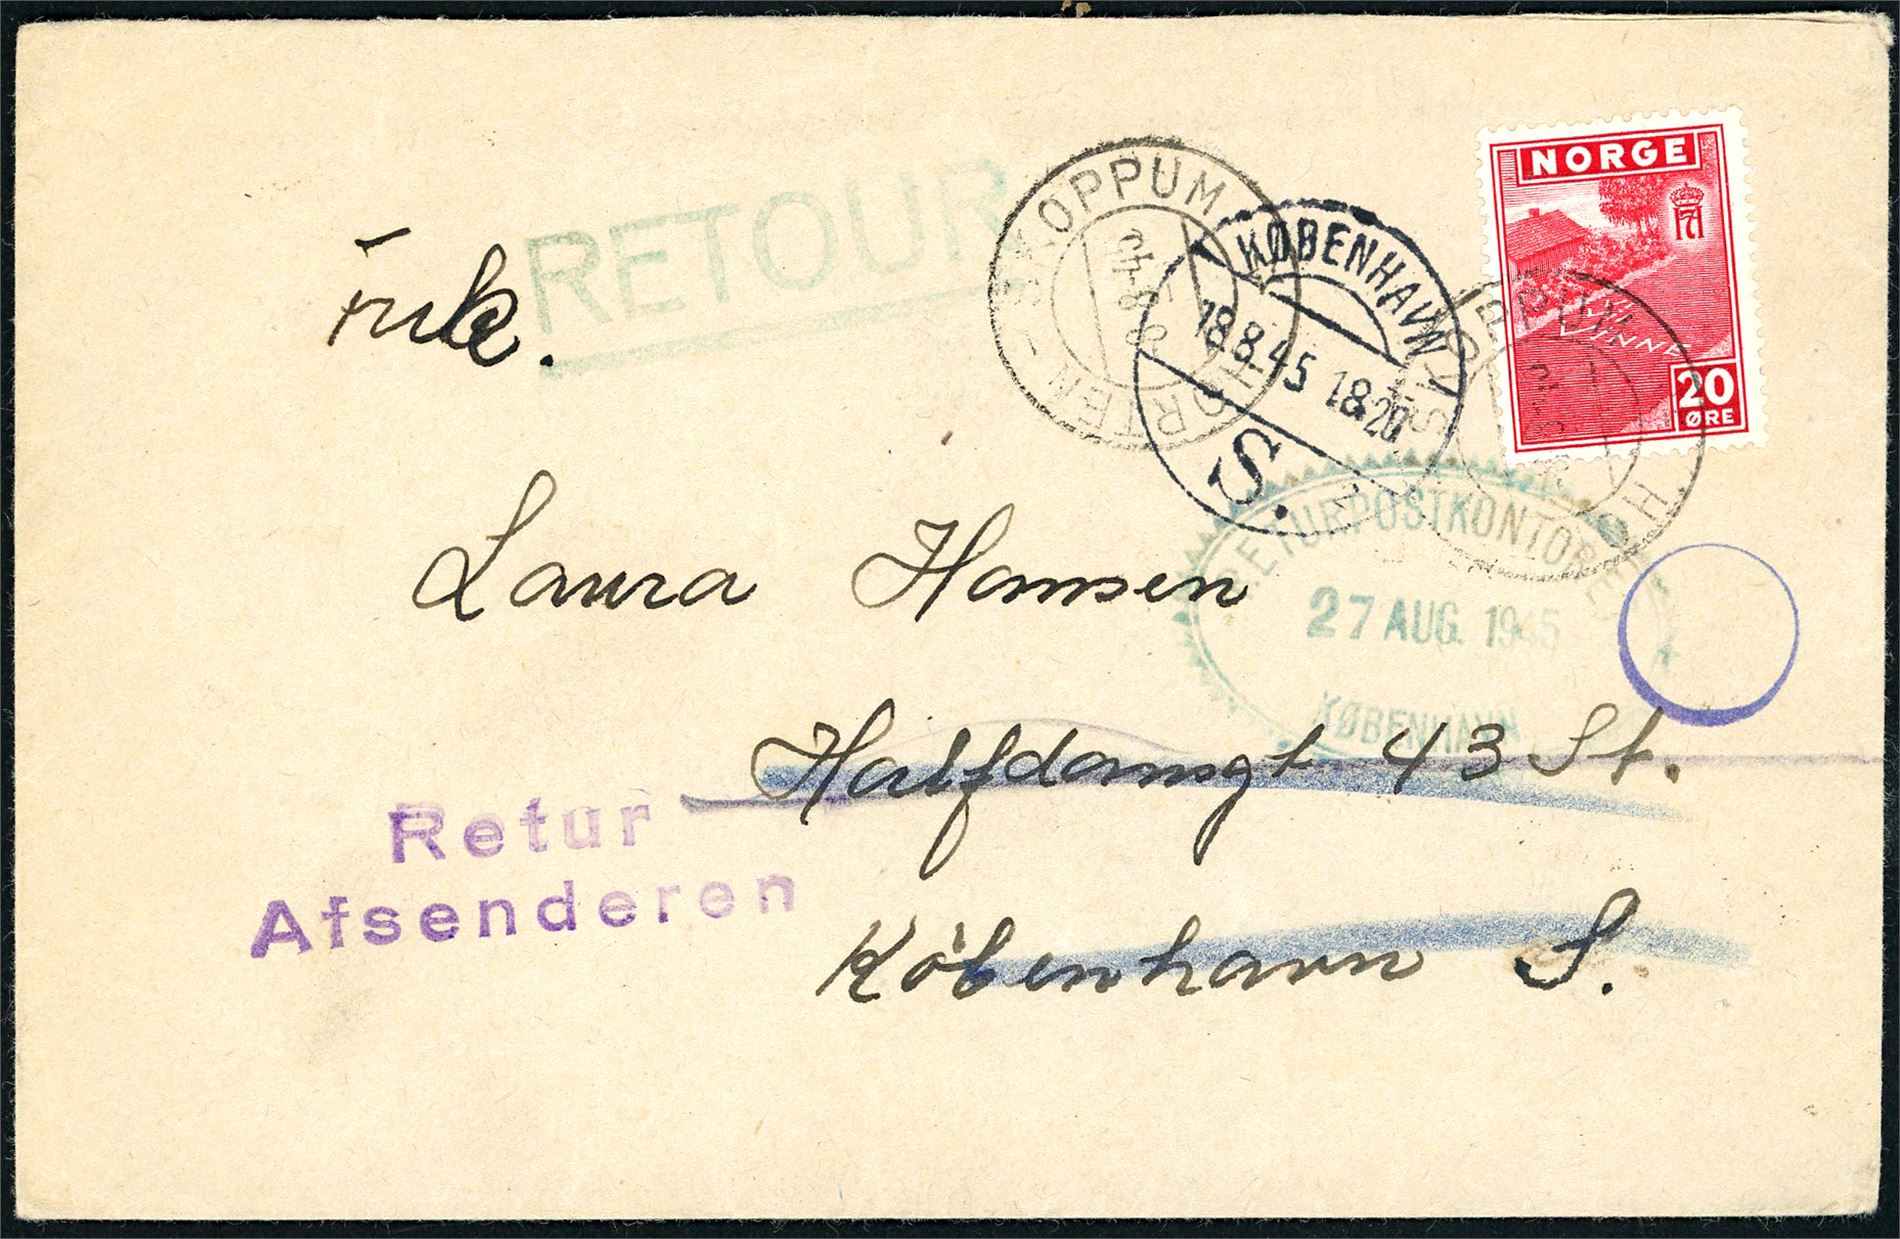 NORGE
VI VINNER
20
ØRE
RETOUR
SKOPPUM - HORTEN
KØBENHAVN
18.8.45 18.20
S.
SKOPPUM
RETURPOSTKONTORET
27 AUG. 1945
KØBENHAVN
Frk.
Laura Hansen
Halfdansgt 43 St.
København S.
Retur
Afsenderen